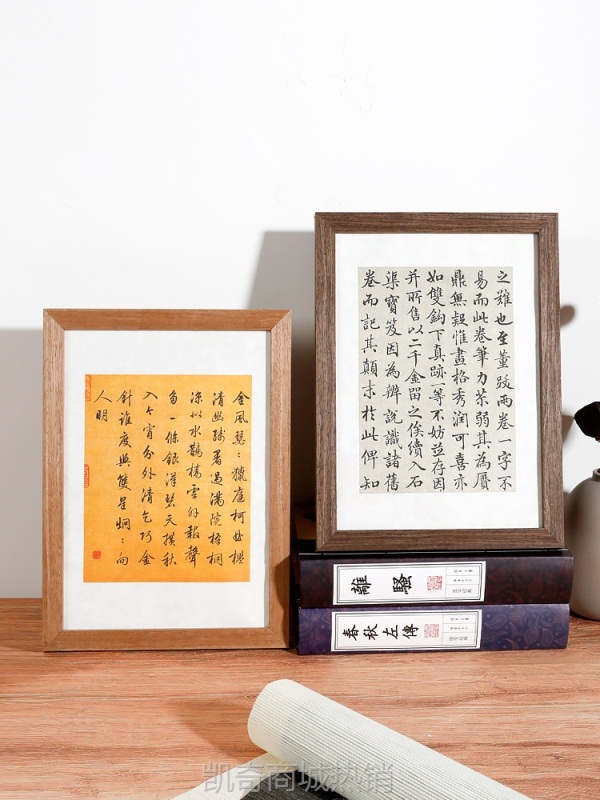 金風瑟瑟獵庭柯
清幽殘暑過滿院梧桐
涼似水鵲橋雲外報聲
多一條銀漢碧天 秋
入今宵分外清乞巧金
針誰度與雙星炯炯向
人明
之難也至董跋兩卷一字不
易而此卷筆力苶弱其為贋
鼎無疑惟畫格秀潤可喜亦
如雙鈎下真跡一等不妨並存因
并所售以二千金留之俟續入石
渠寶笈因為辨說識諸舊
卷而記其顛末於此俾知
離騷
春秋左傳
凯奇商城热销